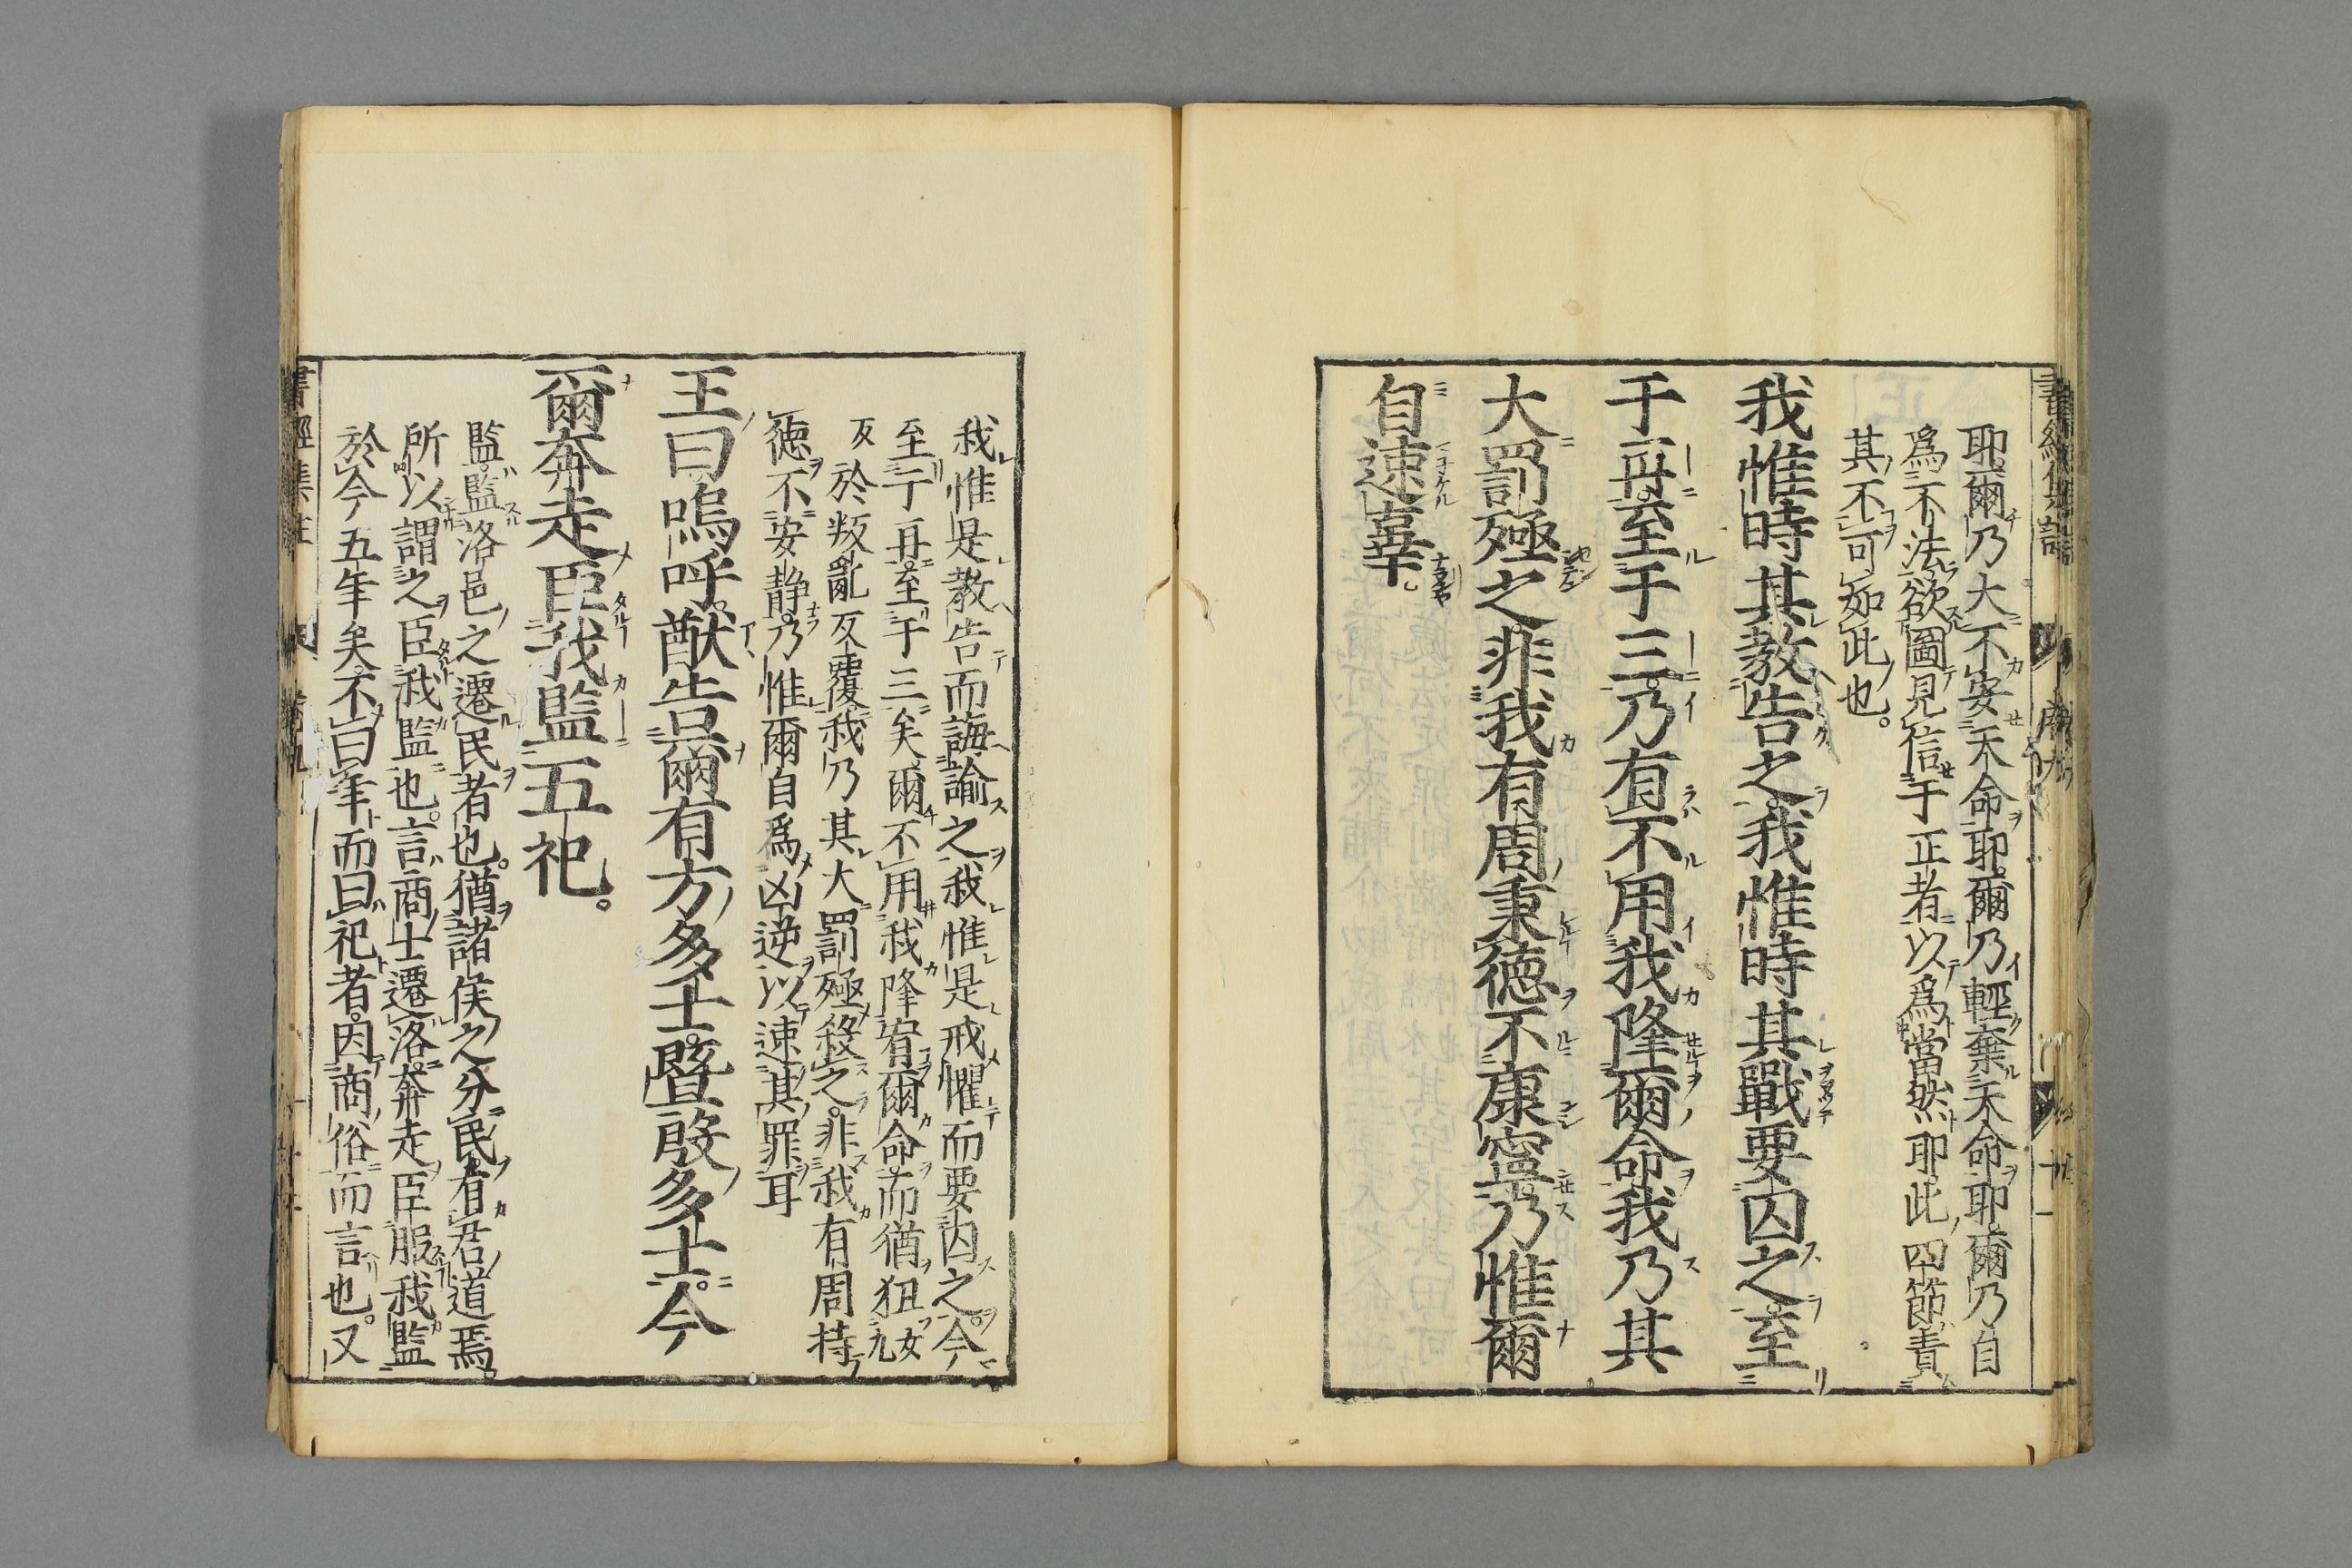 耶爾乃大不安天命耶爾乃輕棄天命耶爾乃自
爲不法欲圖見信于正者以爲當然耶此四節責
其不可如此也。
我惟時其教告之我惟時其戰要囚之至
于再至于三乃有不用我降爾命我乃其
大罰殛之非我有周秉德不康寧乃惟爾
自速辜
我惟是教告而誨諭之我惟是戒懼而要囚之今
至于再至于三矣爾不用我降宥爾命而猶狃
反於叛亂反覆我乃其大罰殛殺之非我有周持
德不安靜乃惟爾自爲凶逆以速其罪耳
王曰嗚呼猷告爾有方多士暨殷多士。今
爾奔走臣我監五祀。
監監洛邑之遷民者也。猶諸侯之分民有君道焉
所以謂之臣我監也。言商士遷洛奔走臣服我監
於今五年矣不曰年而曰祀者因商俗而言也。又
書經集註